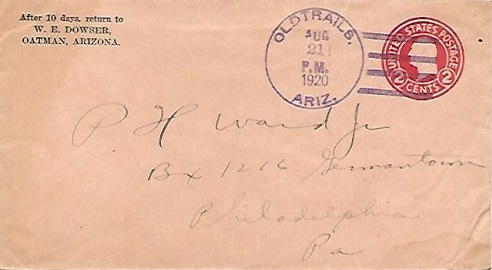 After 10 days, return to
W. E. DOWSER,
OATMAN, ARIZONA.
OLDTRAILS,
AUG
21
P.M.
1920
ARIZ.
UNITED STATES POSTAGE
2 CENTS 2
P H Ward Jr
Box 1216 Germantown
Philadelphia
Pa